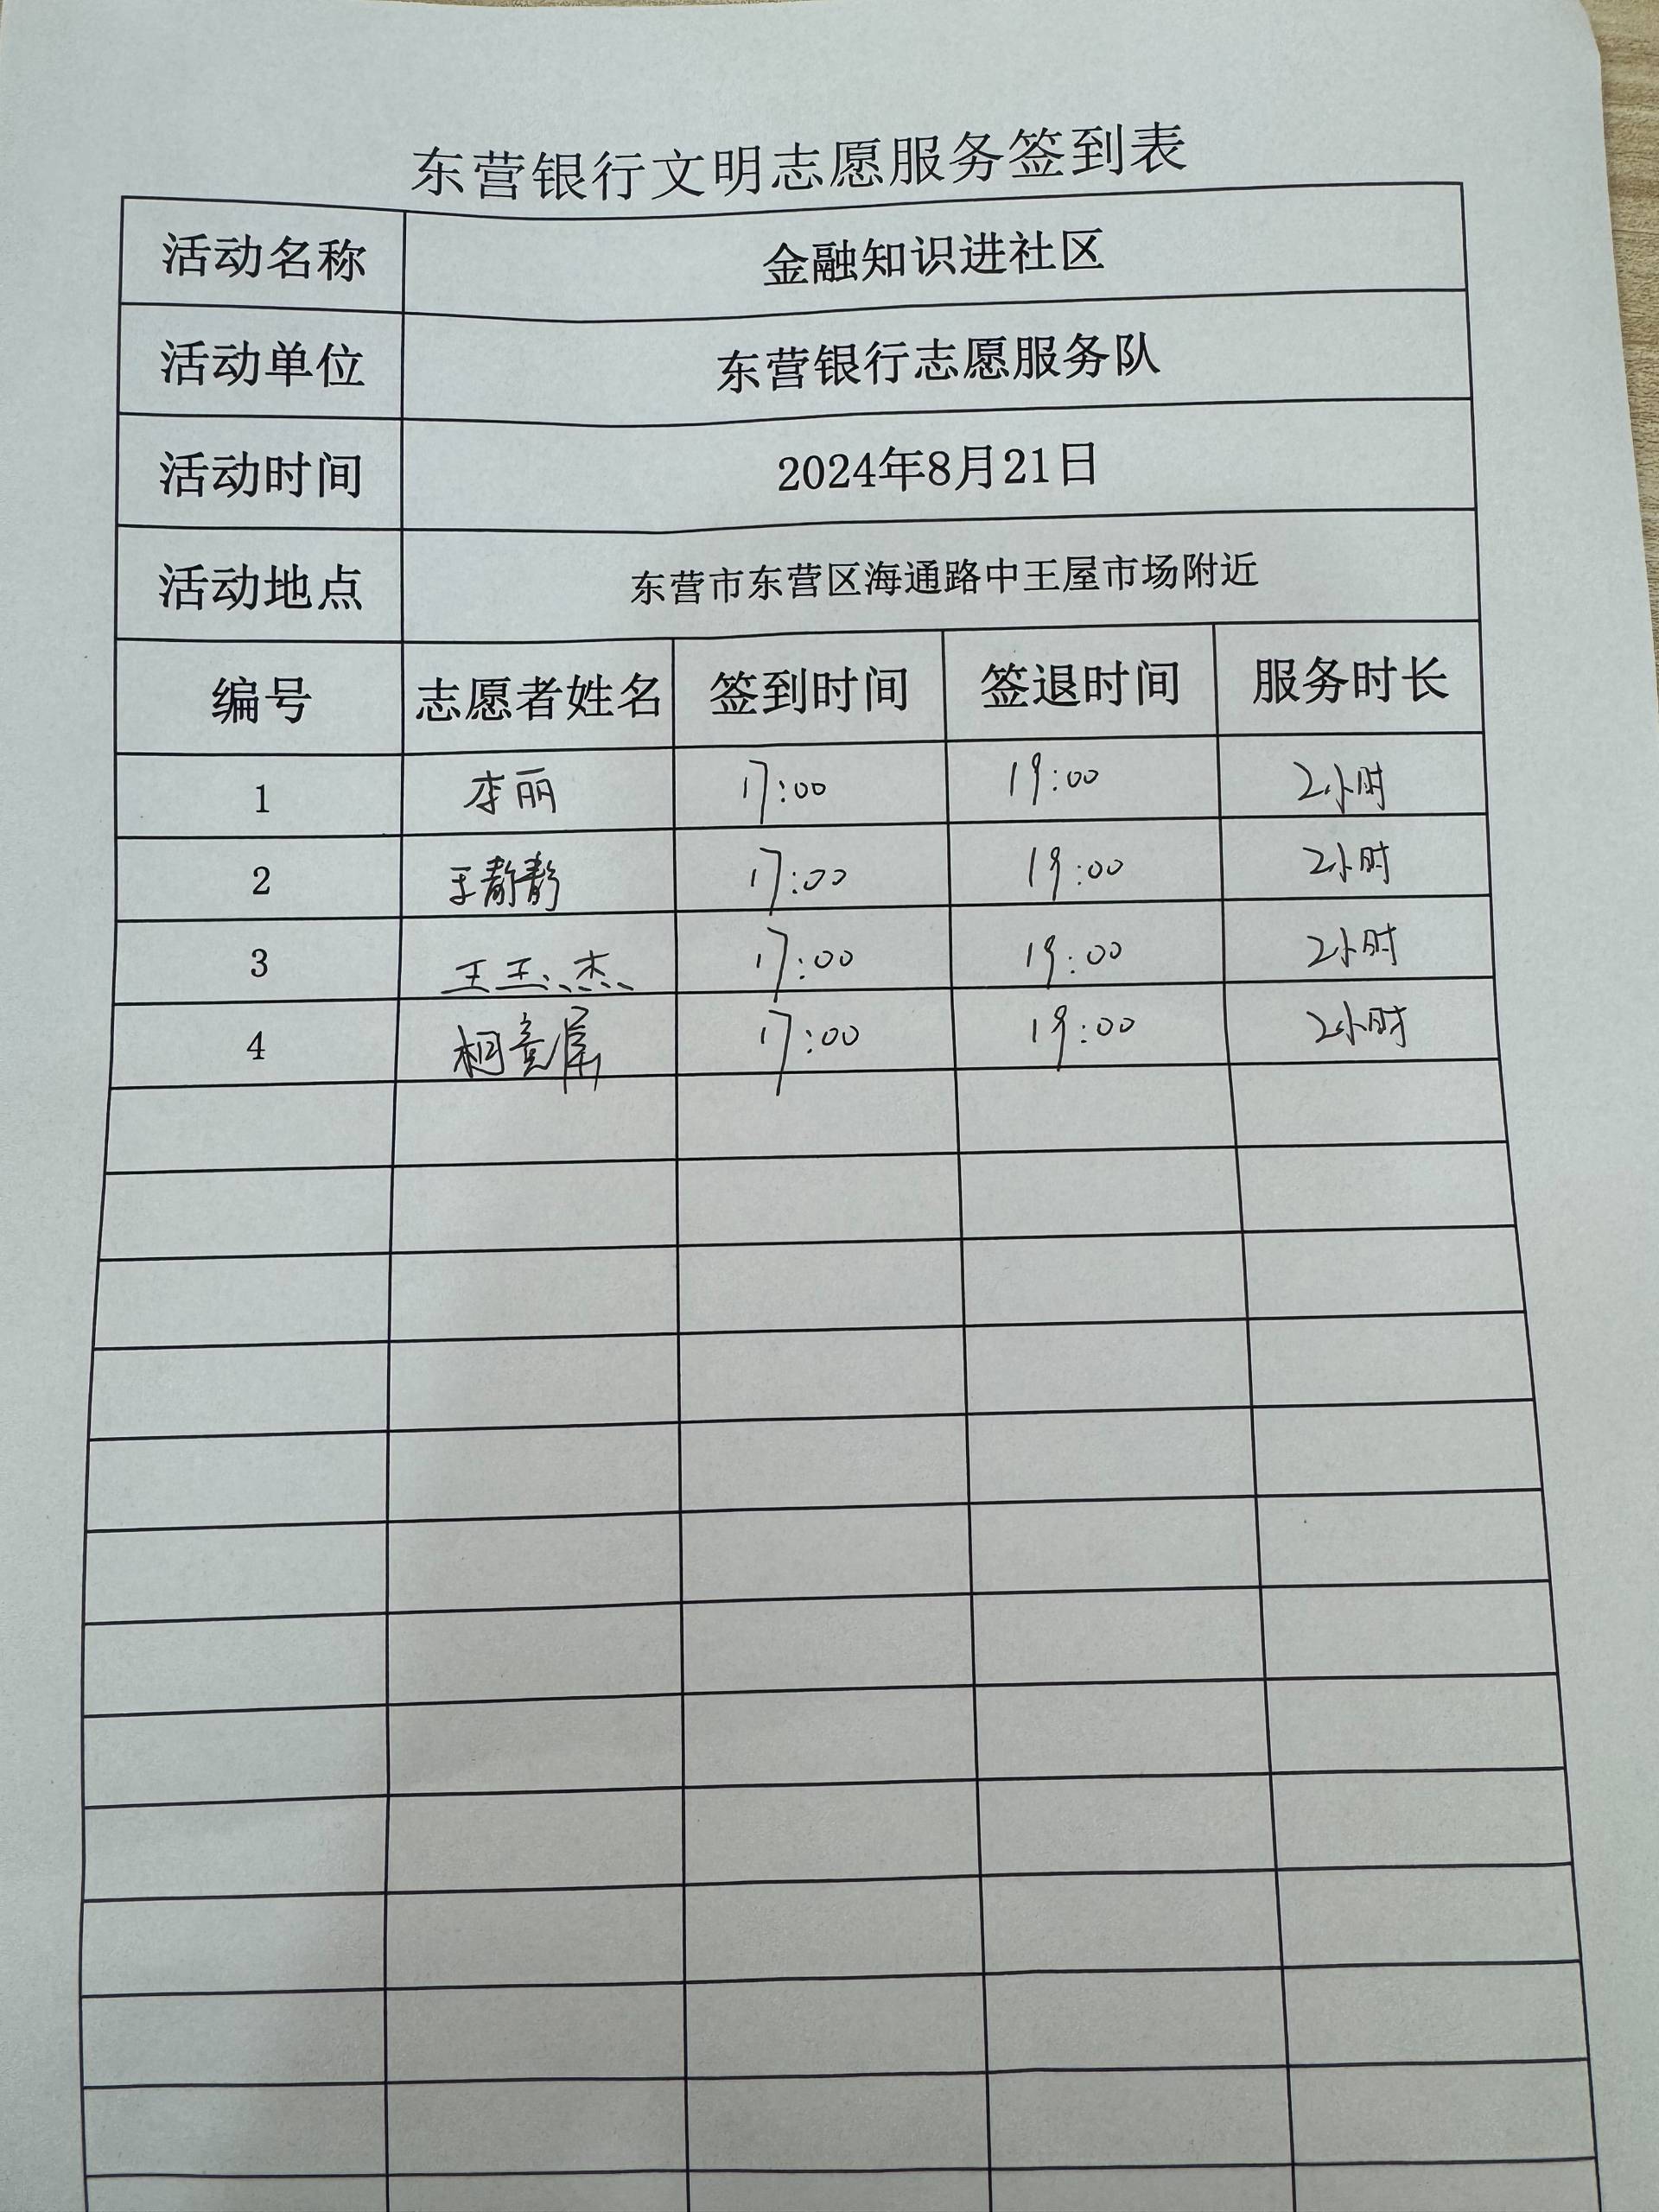 东营银行文明志愿服务签到表
活动名称 金融知识进社区
活动单位 东营银行志愿服务队
活动时间 2024年8月21日
活动地点 东营市东营区海通路中王屋市场附近
编号 志愿者姓名 签到时间 签退时间 服务时长
1 李丽 17:00 19:00 2小时
2 王静静 17:00 19:00 2小时
3 王玉杰 17:00 19:00 2小时
4 17:00 19:00 2小时